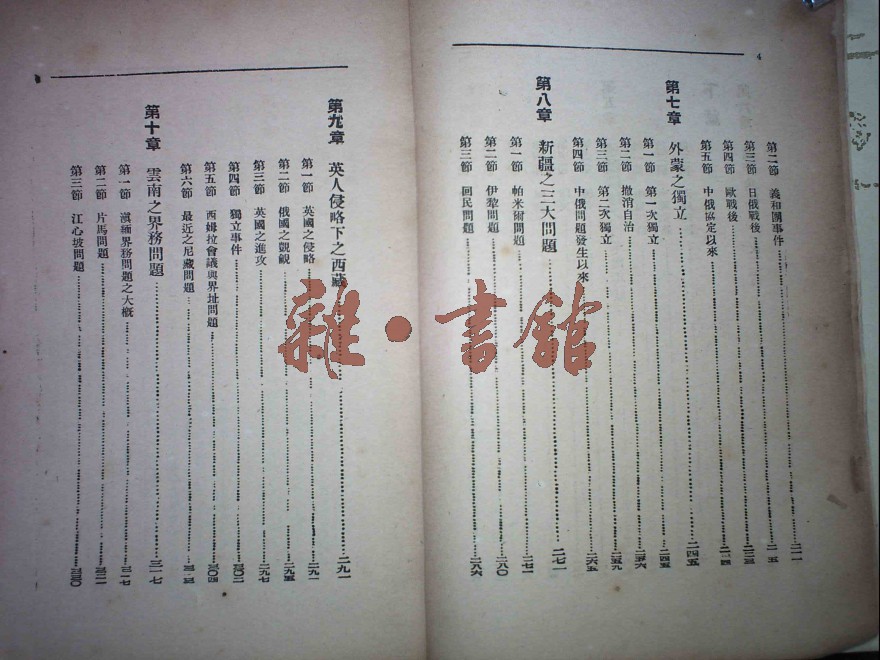 4
第二節 義和團事件
第三節 日俄戰後
第四節 歐戰後
第五節 中俄協定以來
第七章 外蒙之獨立 二四五
第一節 第一次獨立 二四五
第二節 撤消自治
第三節 第二次獨立 二五九
第四節 中俄問題發生以來 二六五
第八章 新疆之三大問題 二七一
第一節 帕米爾問題 二七一
第二節 伊犂問題 二八〇
第三節 回民問題 二八六
第九章 英人侵略下之西藏 二九一
第一節 英國之侵略 二九一
第二節 俄國之覬覦 二九五
第三節 英國之進攻 二九七
第四節 獨立事件 三〇二
第五節 西姆拉會議與界址問題 三〇四
第六節 最近之尼藏問題
第十章 雲南之界務問題 三一七
第一節 滇緬界務問題之大概 三一七
第二節 片馬問題
第三節 江心坡問題
雜·書舘